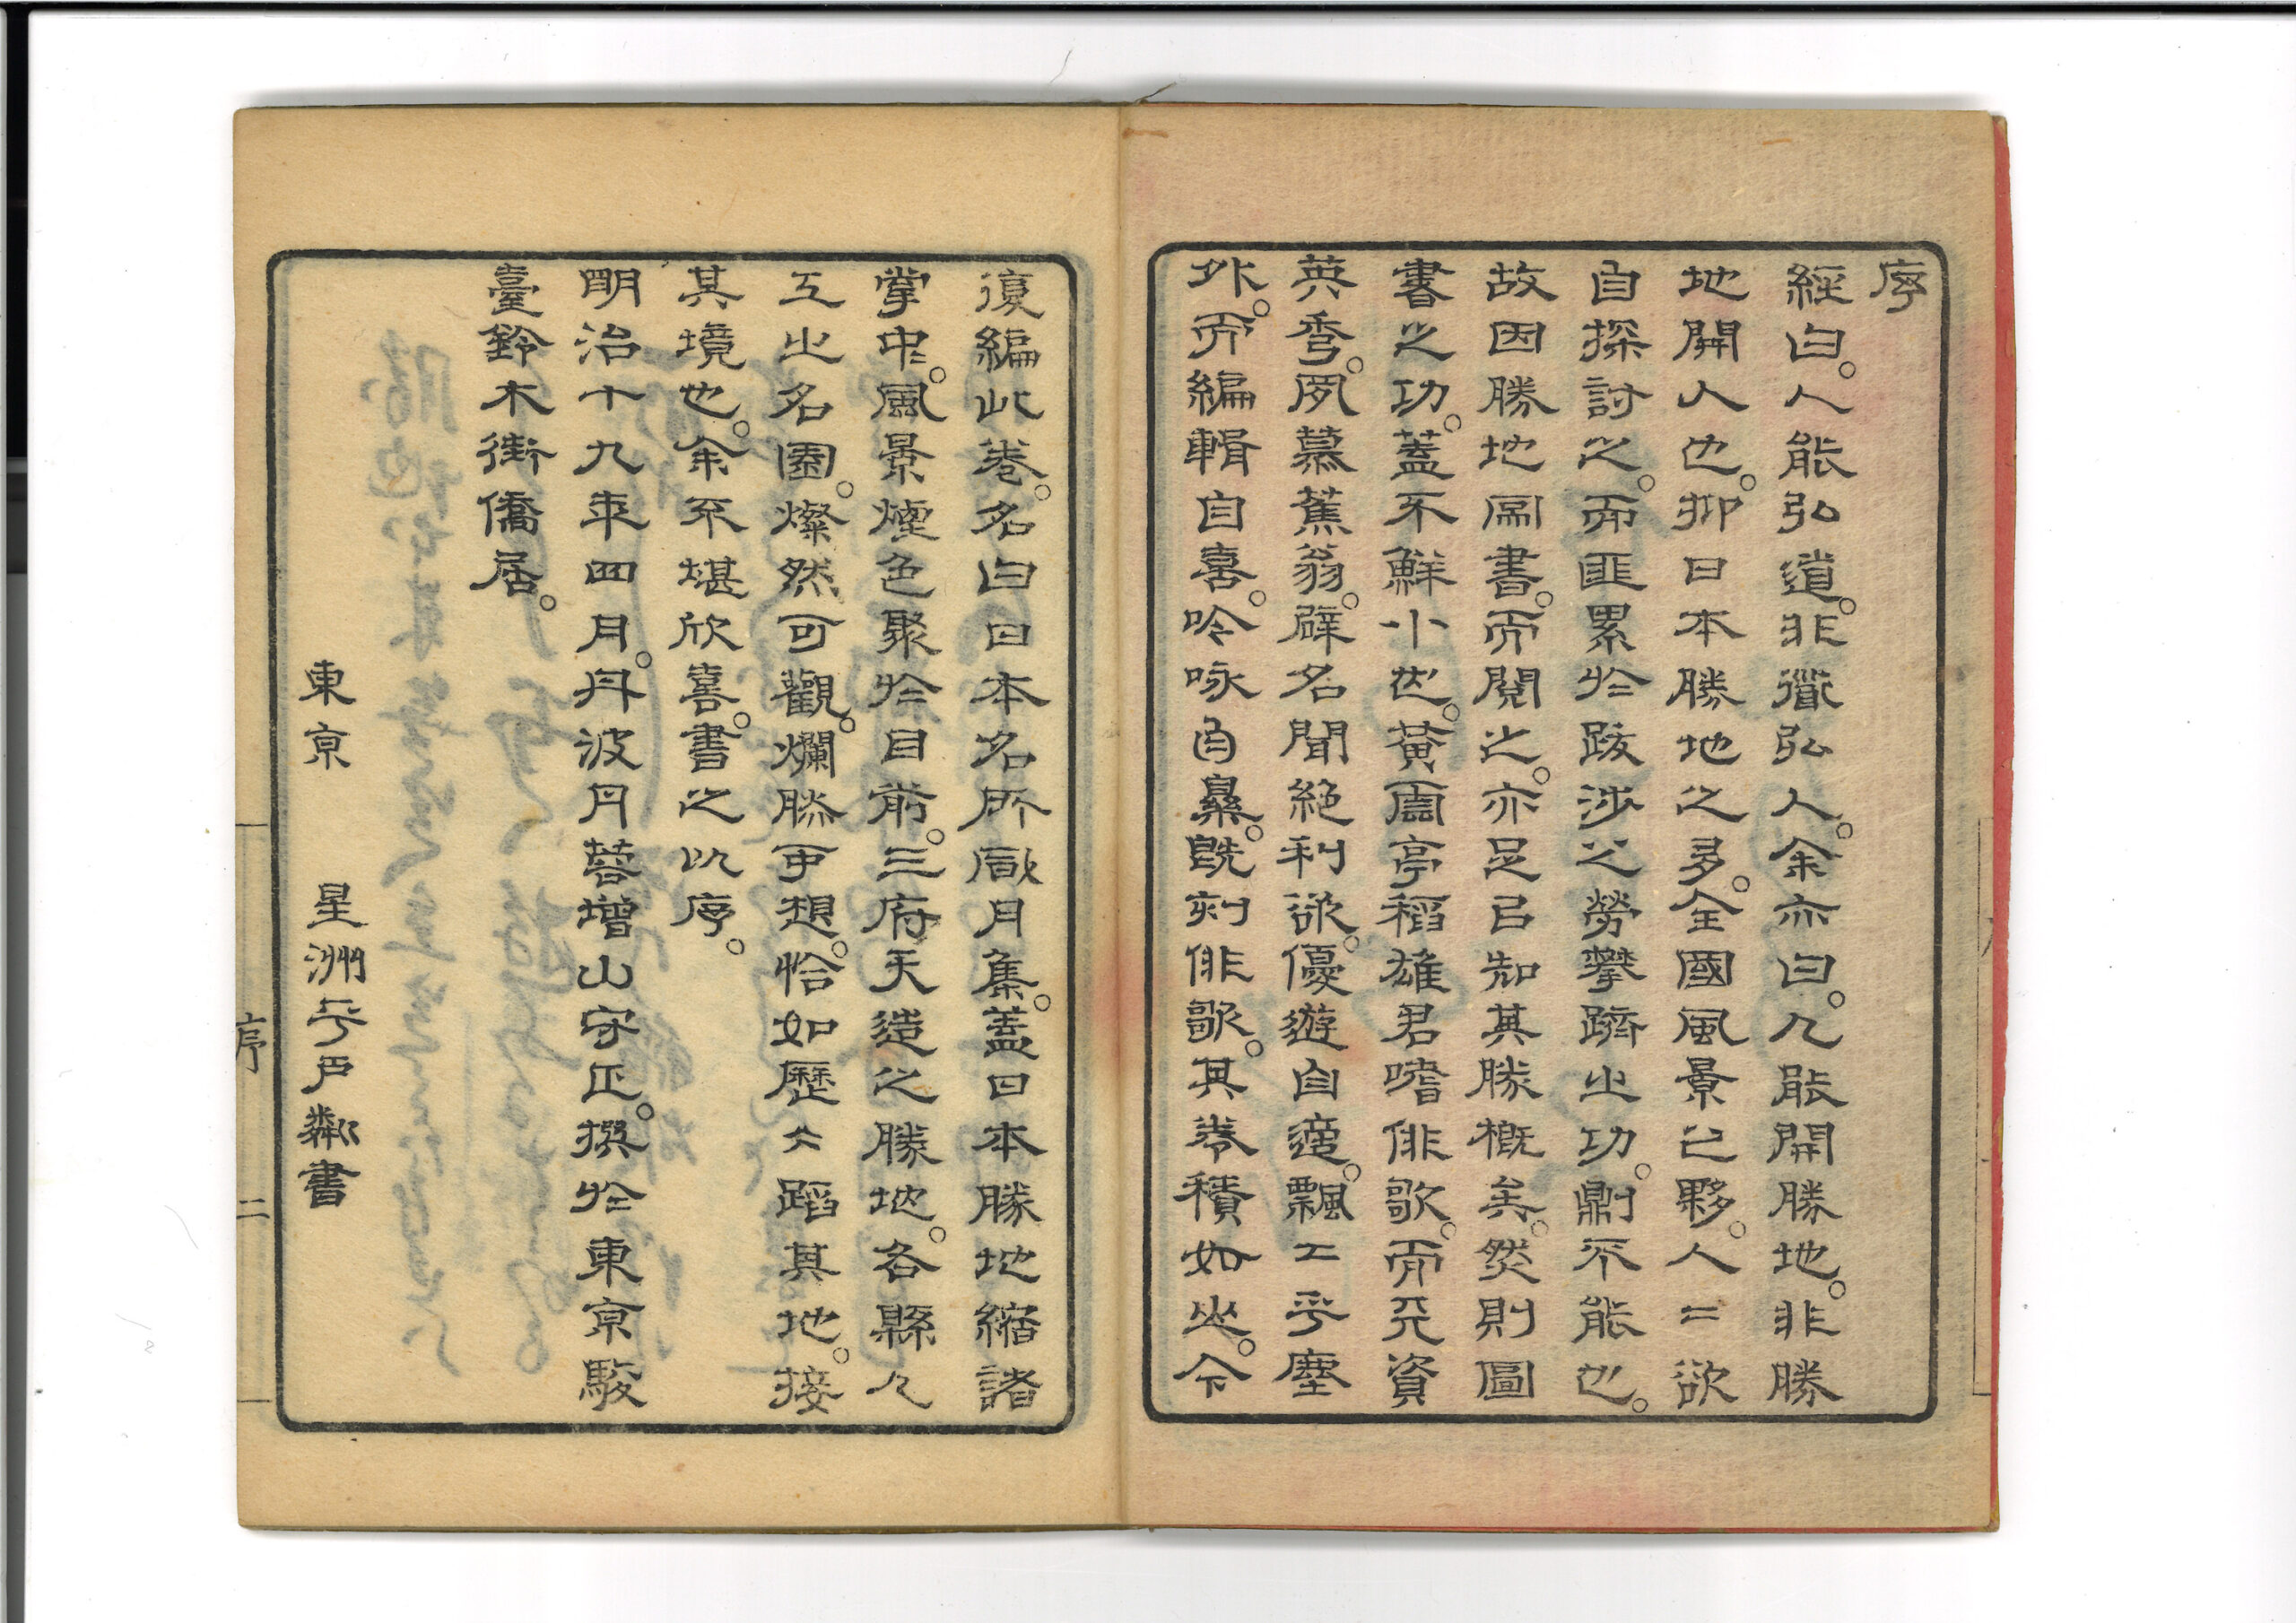 序
經曰。人能弘道。非道弘人。余亦曰。人能開勝地。非勝
地開人也。抑日本勝地之多。全國風景已夥。人〻欲
自探討之。而匪累於跋涉之勞攀躋之功。則不能也。
故因勝地圖書。而閱之。亦足㠯知其勝概矣。然則圖
書之功。蓋不鮮小也。黃雲亭稻雄君嗜俳歌。而天資
英秀。夙慕蕉翁。避名聞絕利欲。優遊自適。飄〻乎塵
外。而編輯自喜。吟咏自樂。既刻俳歌。其卷積如山。今
復編此卷。名曰日本名所風月集。蓋日本勝地縮諸
掌中。風景煙色聚於目前。三府天造之勝地。各縣人
工之名園。燦然可觀。爛然可想。恰如歷〻蹈其地。接
其境也。余不堪欣喜。書之以序。
明治十九年四月。丹波丹蓉增山守正。撰於東京駿
臺鈴木街僑居。
東京 星洲平戶粼書
序 二